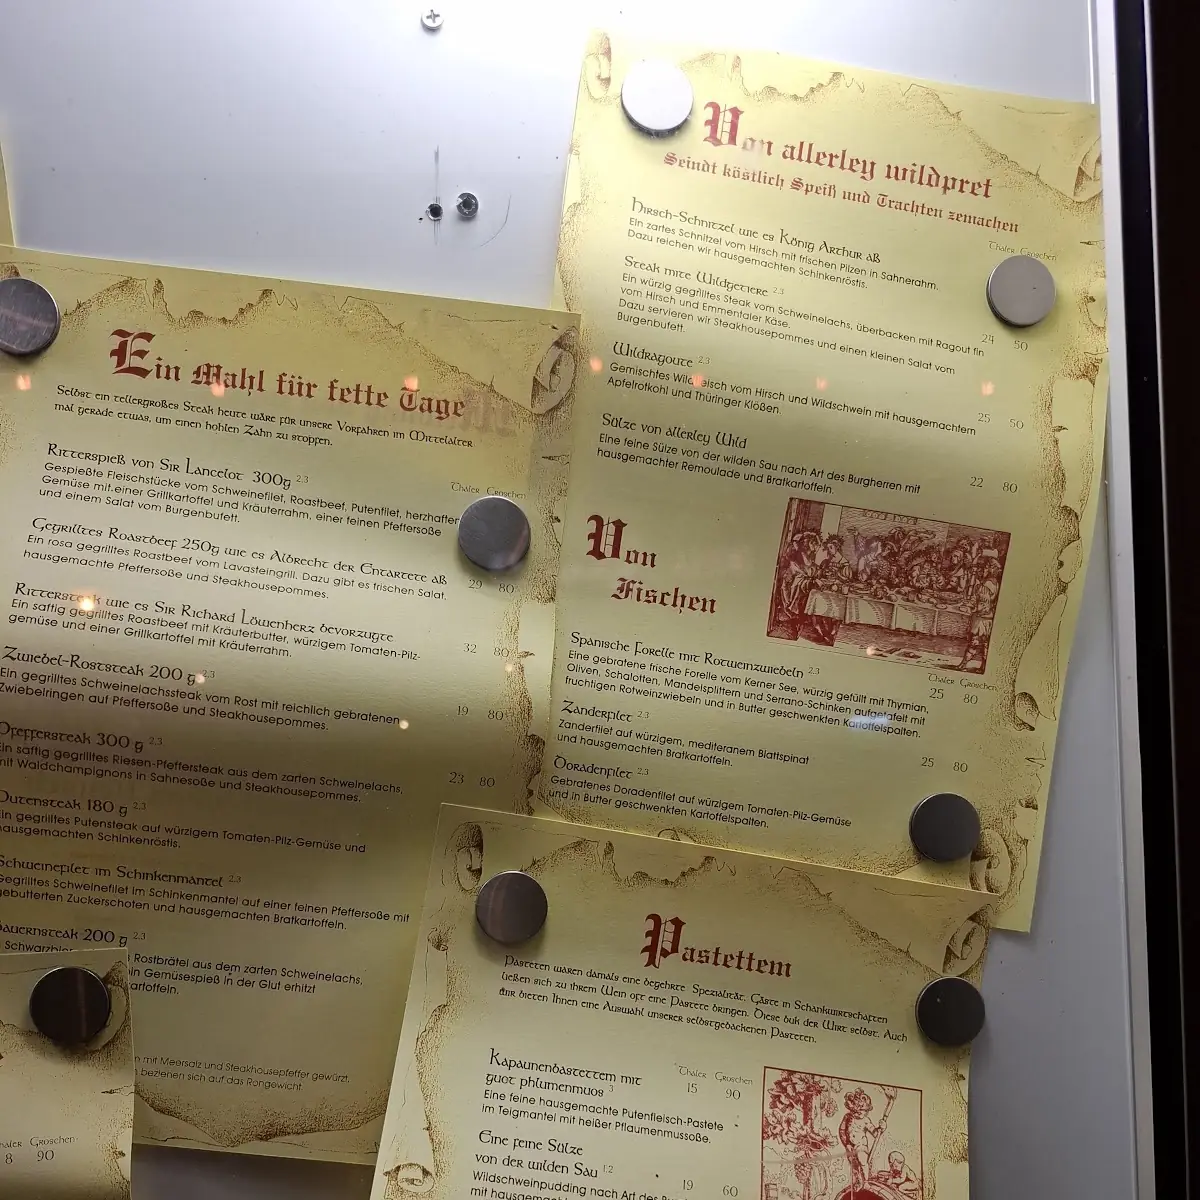 Von allerley wildpret
Seindt köstlich Speiß und Trachten zemachen
Thaler Groschen
Hirsch-Schnitzel wie es König Arthur aß
Ein zartes Schnitzel vom Hirsch mit frischen Pilzen in Sahnerahm.
Dazu reichen wir hausgemachten Schinkenröstis.
Steak mite Wildgetiere 2,3
Ein würzig gegrilltes Steak vom Schweinelachs, überbacken mit Ragout fin
vom Hirsch und Emmentaler Käse. 24 50
Dazu servieren wir Steakhousepommes und einen kleinen Salat vom
Burgenbufett.
Wildragoute 2,3
Gemischtes Wildfleisch vom Hirsch und Wildschwein mit hausgemachtem 25 50
Apfelrotkohl und Thüringer Klößen.
Sülze von allerley Wild
Eine feine Sülze von der wilden Sau nach Art des Burgherren mit 22 80
hausgemachter Remoulade und Bratkartoffeln.
Von
Fischen
Thaler Groschen
Spanische Forelle mit Rotweinzwiebeln 2,3 25 80
Eine gebratene frische Forelle vom Kerner See, würzig gefüllt mit Thymian,
Oliven, Schalotten, Mandelsplittern und Serrano-Schinken aufgetafelt mit
fruchtigen Rotweinzwiebeln und in Butter geschwenkten Kartoffelspalten.
Zanderfilet 2,3
Zanderfilet auf würzigem, mediteranem Blattspinat 25 80
und hausgemachten Bratkartoffeln.
Doradenfilet 2,3
Gebratenes Doradenfilet auf würzigem Tomaten-Pilz-Gemüse
und in Butter geschwenkten Kartoffelspalten.
Ein Mahl für fette Tage
Selbst ein tellergroßes Steak heute wäre für unsere Vorfahren im Mittelalter
mal gerade etwas, um einen hohlen Zahn zu stopfen.
Thaler Groschen
Ritterspieß von Sir Lancelot 300g 2,3
Gespießte Fleischstücke vom Schweinefilet, Roastbeef, Putenfilet, herzhaften
Gemüse mit einer Grillkartoffel und Kräuterrahm, einer feinen Pfeffersoße
und einem Salat vom Burgenbufett.
Gegrilltes Roastbeef 250g wie es Albrecht der Entartete aß
Ein rosa gegrilltes Roastbeef vom Lavasteingrill. Dazu gibt es frischen Salat, 29 80
hausgemachte Pfeffersoße und Steakhousepommes.
Rittersteak wie es Sir Richard Löwenherz bevorzugte
Ein saftig gegrilltes Roastbeef mit Kräuterbutter, würzigem Tomaten-Pilz- 32 80
gemüse und einer Grillkartoffel mit Kräuterrahm.
Zwiebel-Roststeak 200 g 2,3
Ein gegrilltes Schweinelachssteak vom Rost mit reichlich gebratenen 19 80
Zwiebelringen auf Pfeffersoße und Steakhousepommes.
Pfeffersteak 300 g 2,3
Ein saftig gegrilltes Riesen-Pfeffersteak aus dem zarten Schweinelachs, 23 80
mit Waldchampignons in Sahnesoße und Steakhousepommes.
Putensteak 180 g 2,3
Ein gegrilltes Putensteak auf würzigem Tomaten-Pilz-Gemüse und
hausgemachten Schinkenröstis.
Schweinefilet im Schinkenmantel 2,3
Gegrilltes Schweinefilet im Schinkenmantel auf einer feinen Pfeffersoße mit
gebutterten Zuckerschoten und hausgemachten Bratkartoffeln.
Bauernsteak 200 g 2,3
Rostbrätel aus dem zarten Schweinelachs,
ein Gemüsespieß in der Glut erhitzt
kartoffeln.
mit Meersalz und Steakhousepfeffer gewürzt,
beziehen sich auf das Rohgewicht
Thaler Groschen
8 90
Pastettem
Pasteten waren damals eine begehrte Spezialität. Gäste in Schankwirtschaften
ließen sich zu ihrem Wein oft eine Pastete bringen. Diese buk der Wirt selbst. Auch
wir bieten Ihnen eine Auswahl unserer selbstgebackenen Pasteten.
Thaler Groschen
Kapaunenbastettem mit 15 90
guot phlumenmuos 3
Eine feine hausgemachte Putenfleisch-Pastete
im Teigmantel mit heißer Pflaumenmussoße.
Eine feine Sülze
von der wilden Sau 1,2 19 60
Wildschweinpudding nach Art des